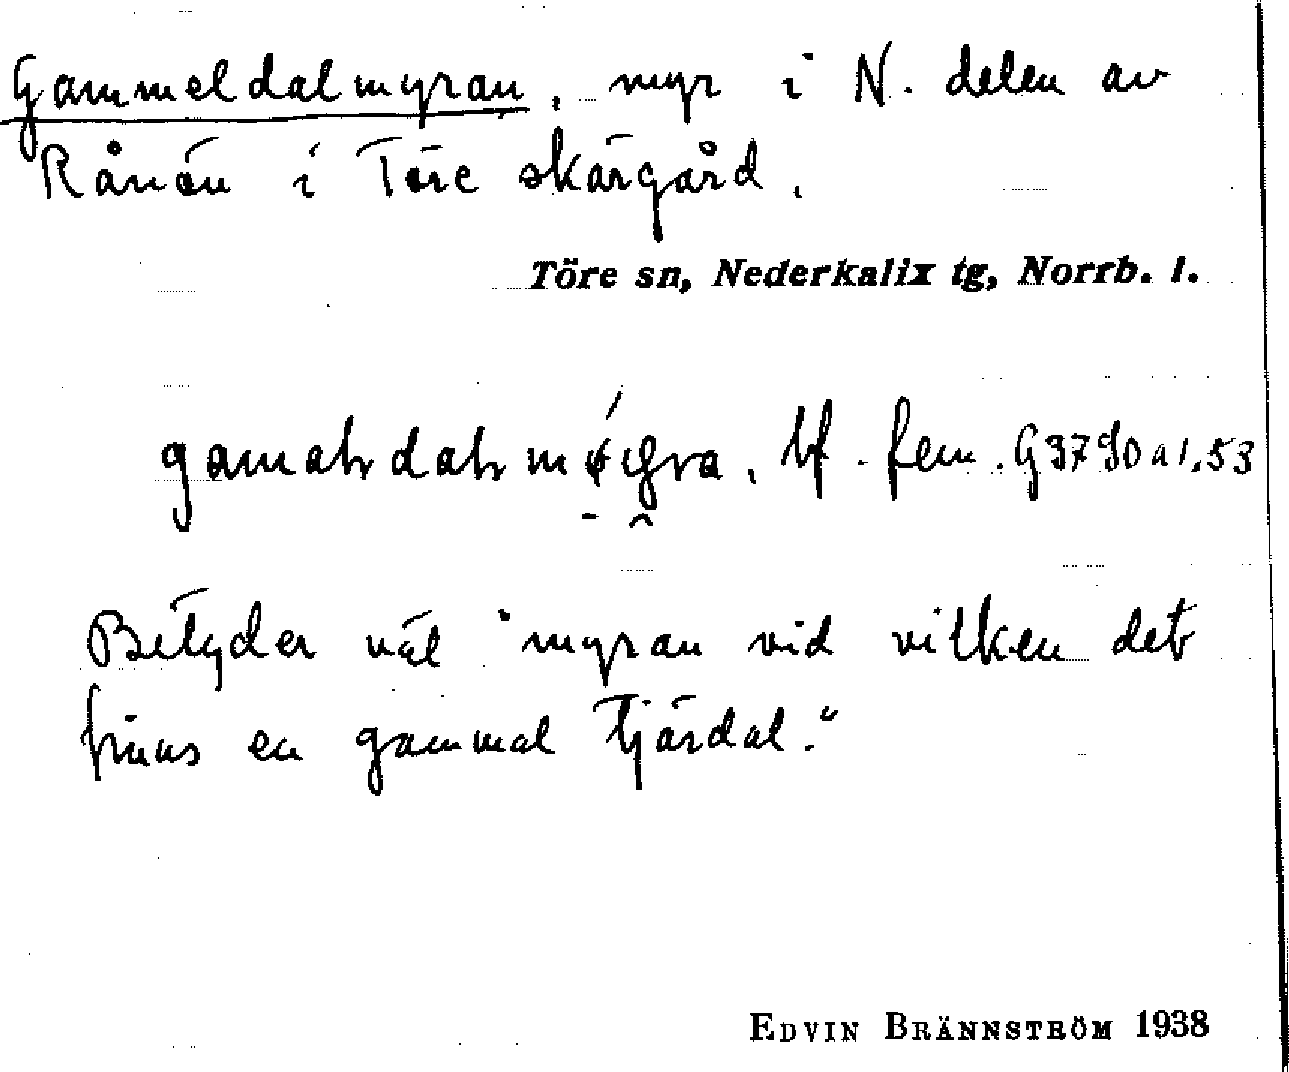 Gammeldalmyran, myr i N. delen av
Rånön i Töre skärgård.
Töre sn, Nederkalix tg, Norrb. l.
bf. fem. G 3790 a 1.53
Betyder väl "myran vid vilken det
finns en gammal tjärdal."
EDVIN BRÄNNSTRÖM 1938